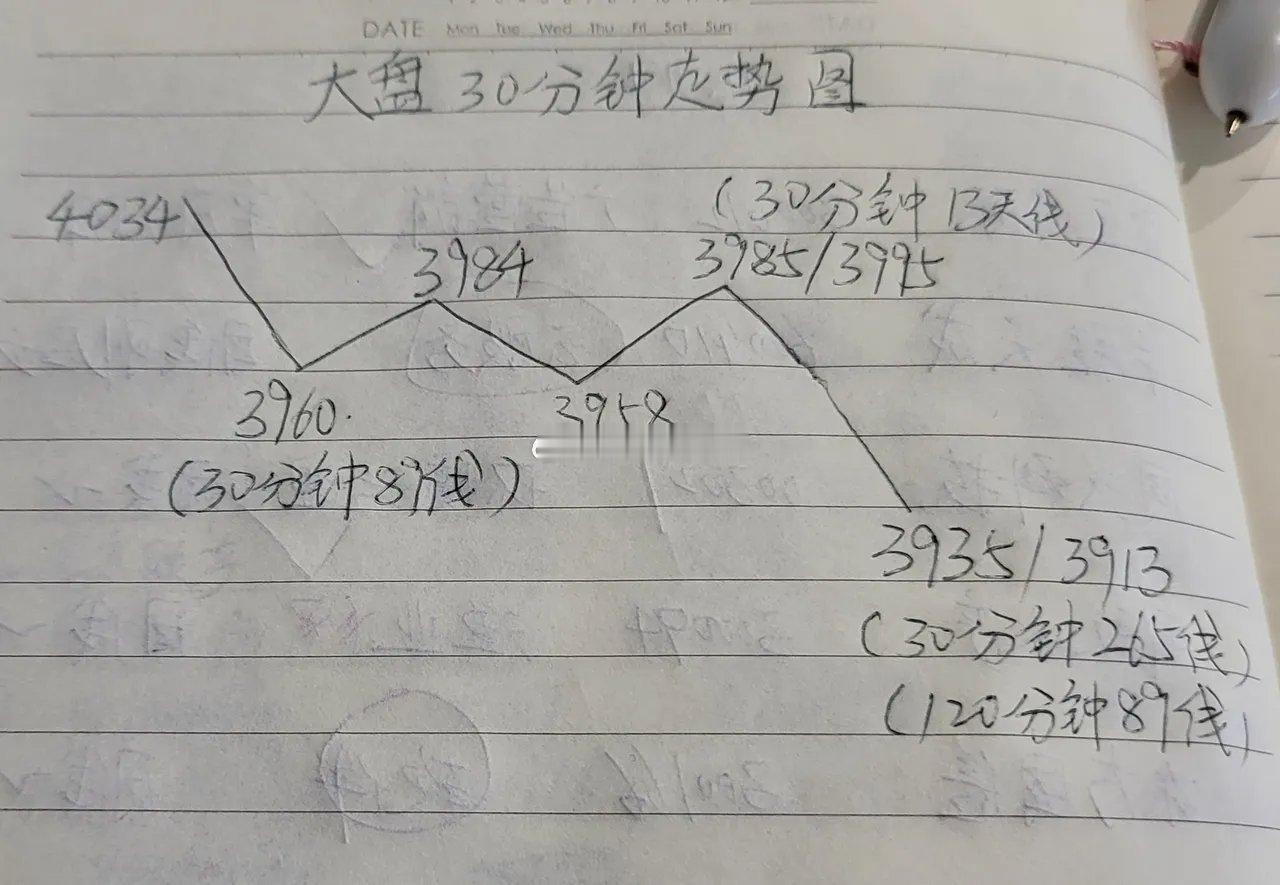 DATE Mon Tue Wed Thu Fri Sat Sun
大盘30分钟走势图
(30分钟13天线)
4034
3984
3985/3995
3960.
3958
(30分钟89线)
3935/3913
(30分钟265线)
(120分钟89线)